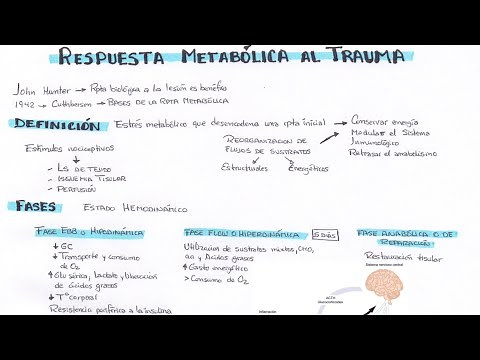 RESPUESTA METABÓLICA AL TRAUMA
John Hunter → Rpta biológica a la lesión es benéfica
1942 → Cuthberson → BASES DE LA RPTA METABÓLICA
DEFINICIÓN Estrés metabólico que desencadena una rpta inicial
Conservar energía
Modular el Sistema
Inmunológico
Retrasar el anabolismo
REORGANIZACION DE
FLUJOS DE SUSTRATOS
Estructurales Energéticos
Estímulos nociceptivos
- LS DE TEJIDO
- ISQUEMIA TISULAR
- PERFUSIÓN
FASES ESTADO HEMODINÁMICO
FASE EBB O HIPODINÁMICA
↓ GC
↓ Transporte y consumo
de O2
↑ Glucosa, Lactato y liberación
de ácidos grasos
↓ T° corporal
Resistencia periférica a la insulina
FASE FLOW O HIPERDINÁMICA 5 DÍAS
Utilización de sustratos mixtos, CHO,
aa y Ácidos grasos
↑ Gasto energético
> Consumo de O2
FASE ANABÓLICA O DE
REPARACIÓN
Restauración tisular
Sistema nervioso central
ACTH